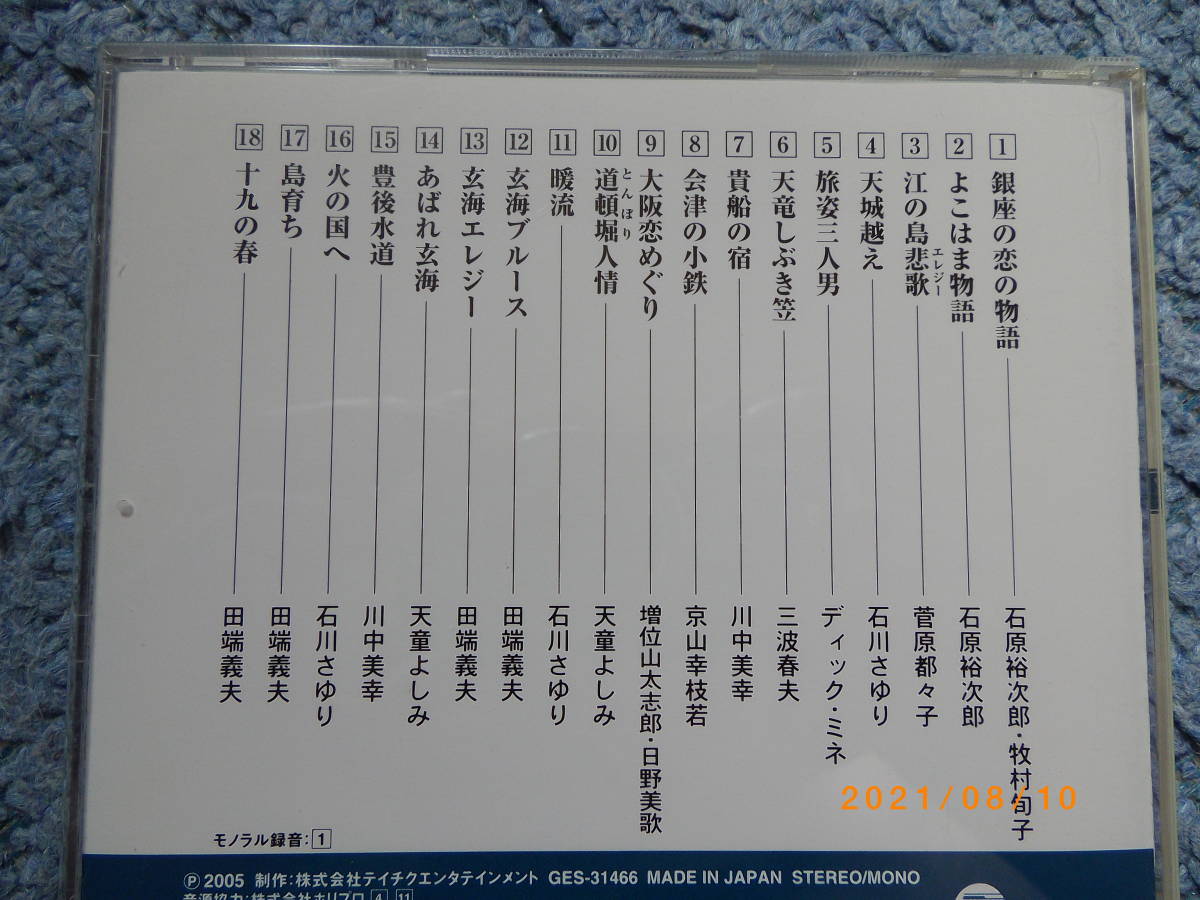 1 銀座の恋の物語 石原裕次郎・牧村旬子
2 よこはま物語 石原裕次郎
3 江の島悲歌 エレジー 菅原都々子
4 天城越え 石川さゆり
5 旅姿三人男 ディック・ミネ
6 天竜しぶき笠 三波春夫
7 貴船の宿 川中美幸
8 会津の小鉄 京山幸枝若
9 大阪恋めぐり 増位山太志郎・日野美歌
10 道頓堀人情 とんぼり 天童よしみ
11 暖流 石川さゆり
12 玄海ブルース 田端義夫
13 玄海エレジー 田端義夫
14 あばれ玄海 天童よしみ
15 豊後水道 川中美幸
16 火の国へ 石川さゆり
17 島育ち 田端義夫
18 十九の春 田端義夫
2021/08/10
モノラル録音:1
Ⓟ 2005 制作:株式会社テイチクエンタテインメント GES-31466 MADE IN JAPAN STEREO/MONO
音源協力:株式会社ホリプロ 4 11